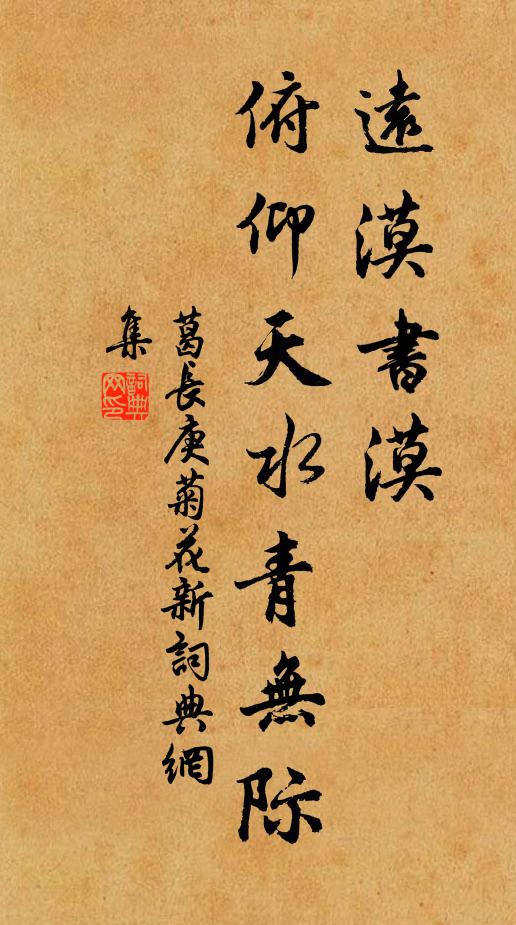 遠漠書漠
俯仰天水青無际
葛長庚菊花新詞典網
集
詞典
网印